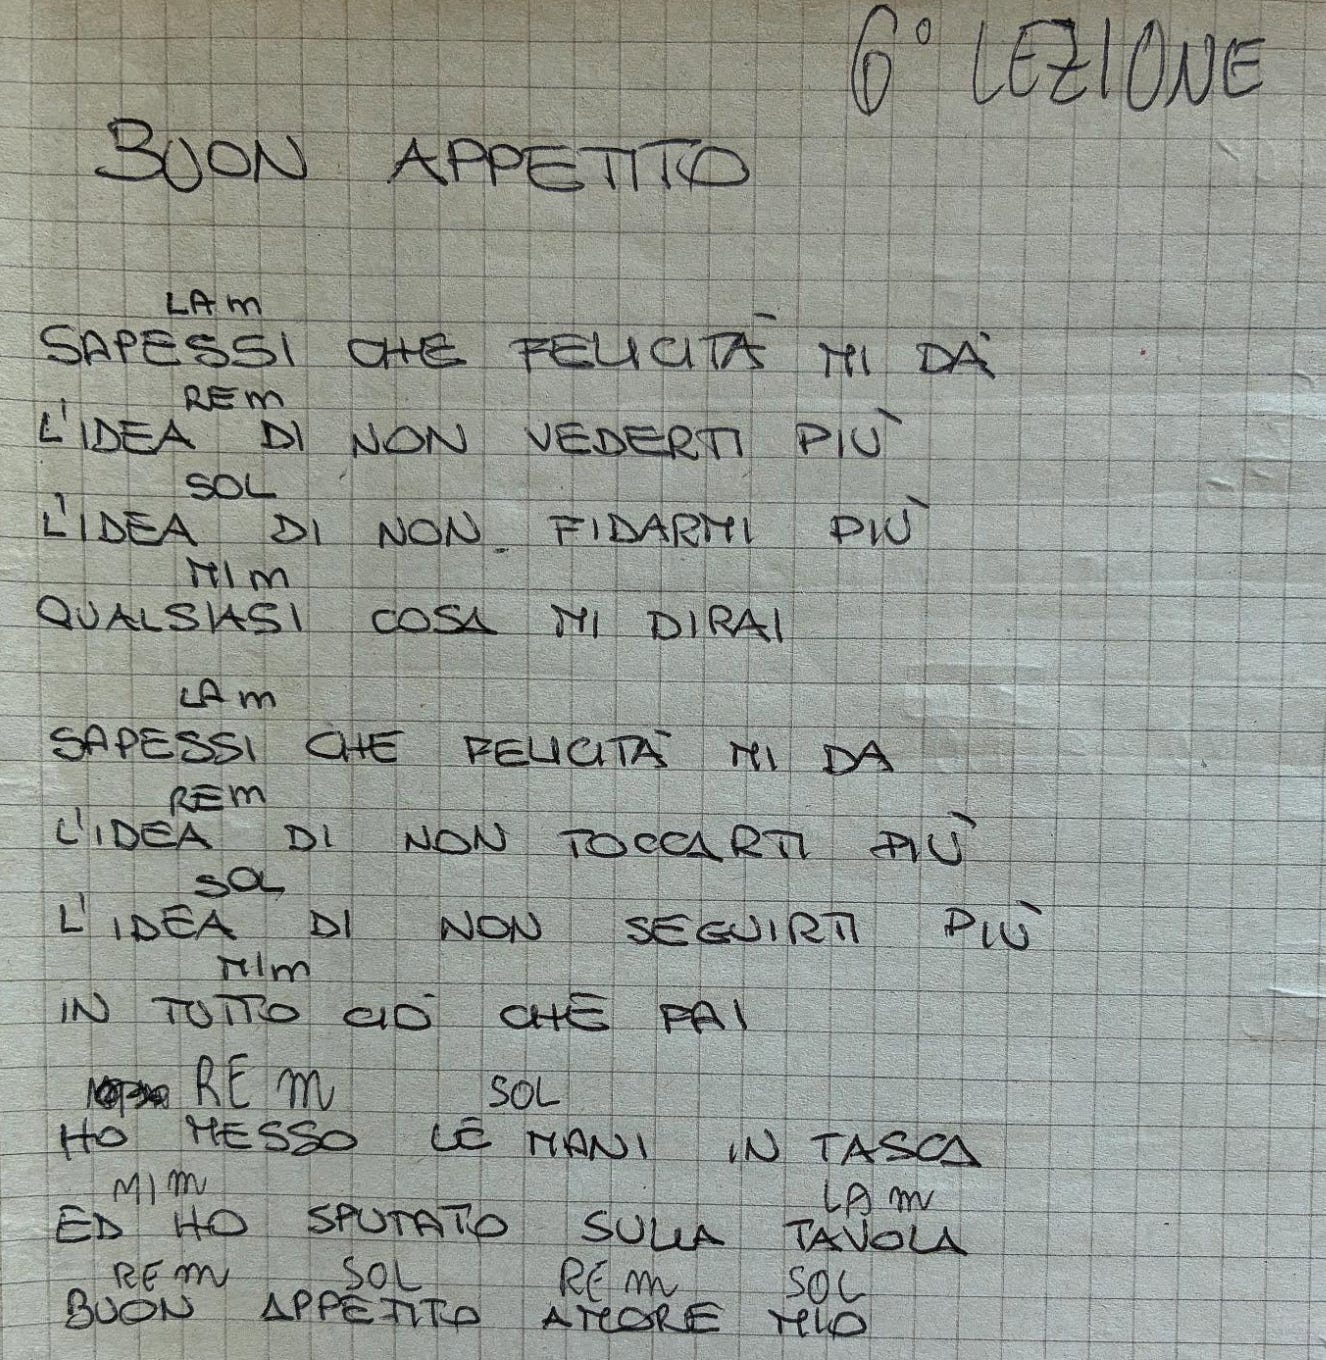 6° LEZIONE
BUON APPETITO
LAm
SAPESSI CHE FELICITÀ MI DÀ
REm
L'IDEA DI NON VEDERTI PIÙ
SOL
L'IDEA DI NON FIDARMI PIÙ
MIm
QUALSIASI COSA MI DIRAI
LAm
SAPESSI CHE FELICITÀ MI DA
REm
L'IDEA DI NON TOCCARTI PIÙ
SOL
L'IDEA DI NON SEGUIRTI PIÙ
MIm
IN TUTTO CIÒ CHE FAI
REm SOL
HO MESSO LE MANI IN TASCA
MIm LAm
ED HO SPUTATO SULLA TAVOLA
REm SOL REm SOL
BUON APPETITO AMORE MIO